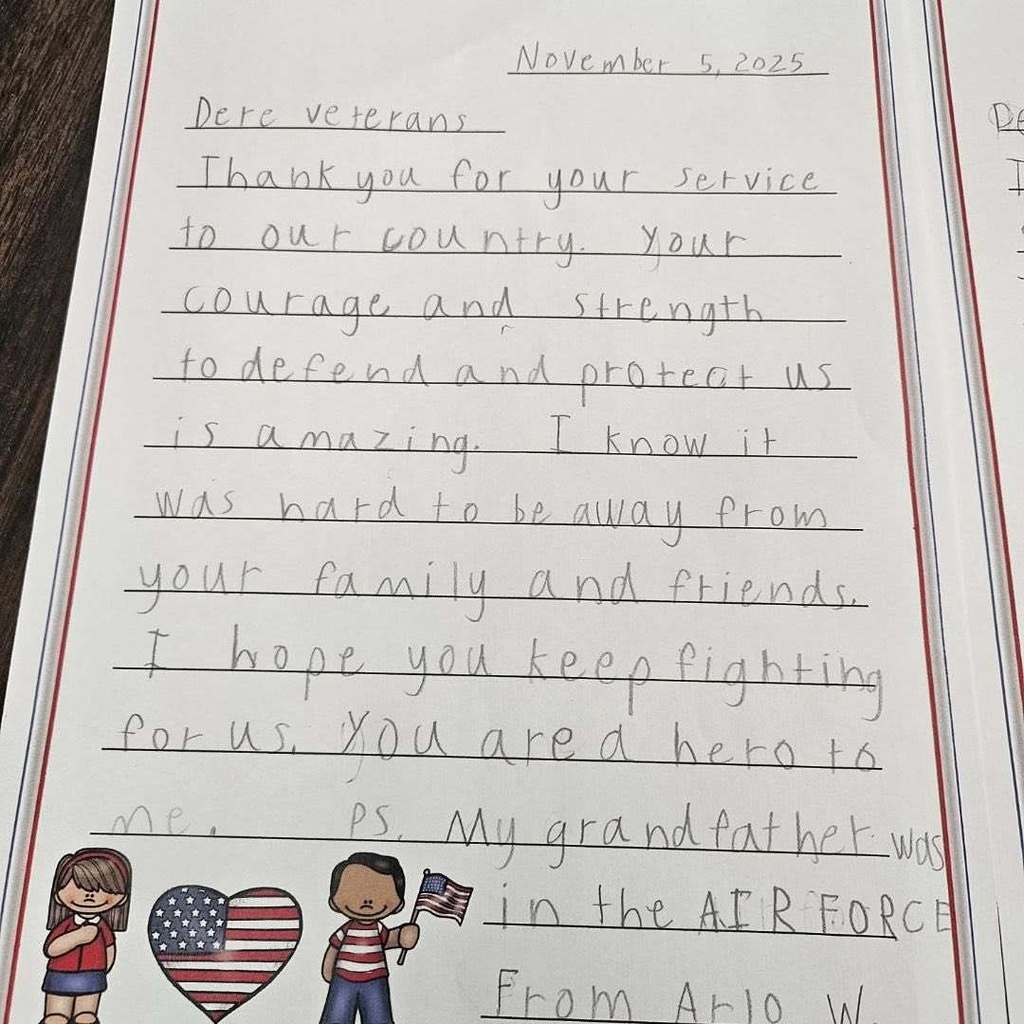 November 5, 2025
Dere veterans
Thank you for your service
to our country. Your
courage and strength
to defend and protect us
is amazing. I know it
was hard to be away from
your family and friends.
I hope you keep fighting
for us. You are a hero to
me. PS. My grandfather was
in the AIR FORCE
From Arlo W.